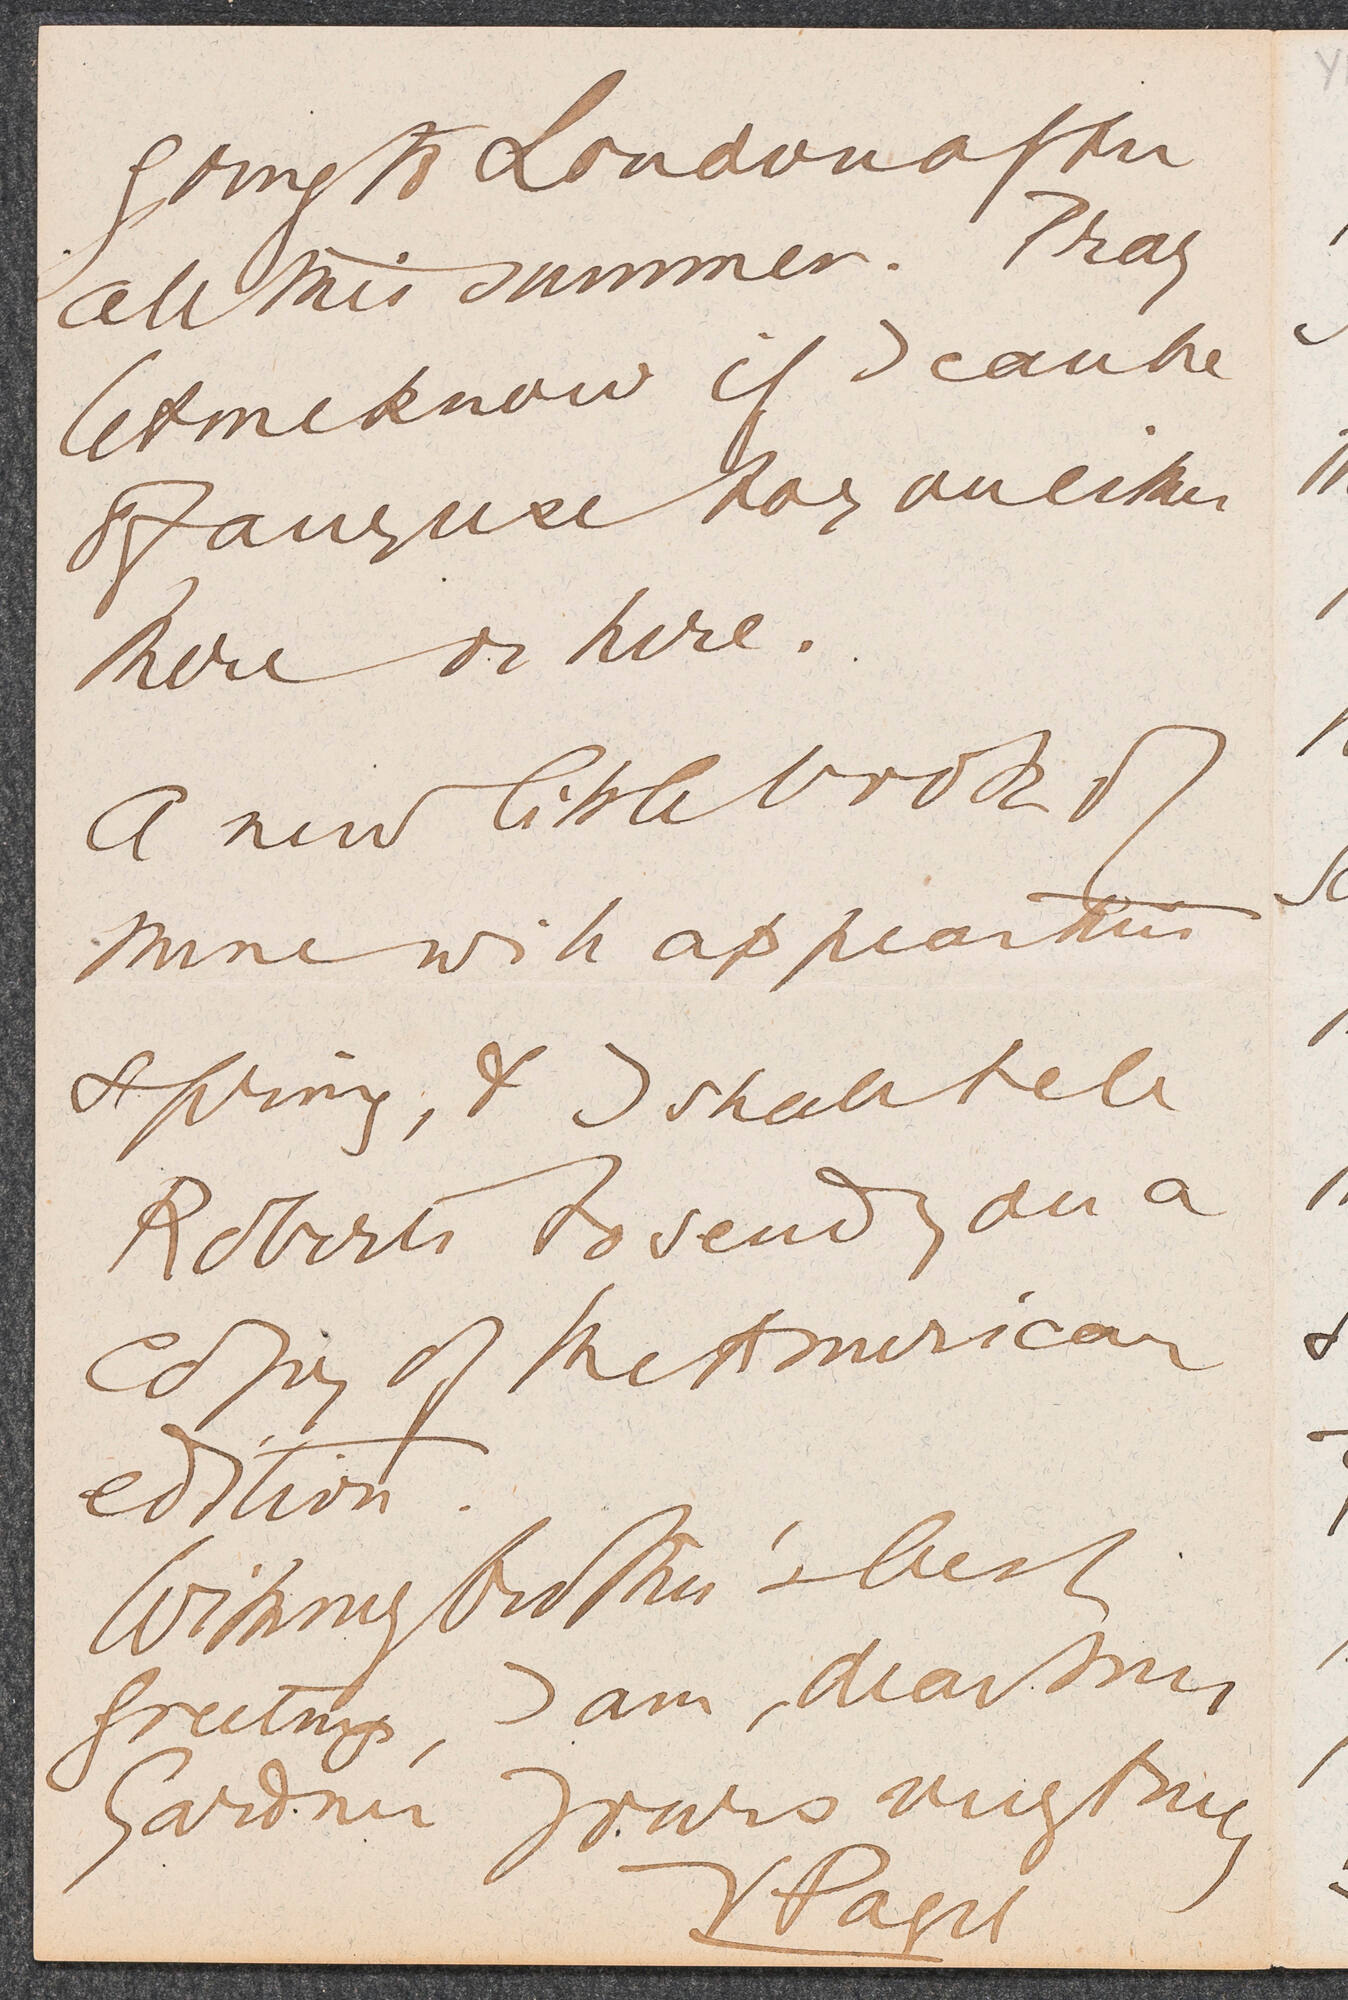 going to London after
all this summer. Pray
let me know if I can be
of any use to you either
there or here.
A new little book of
mine will appear this
spring, & I shall tell
Roberts to send you a
copy of the American
edition.
With my brother's best
greetings, I am, dear Mrs
Gardner Yours very truly
V Paget